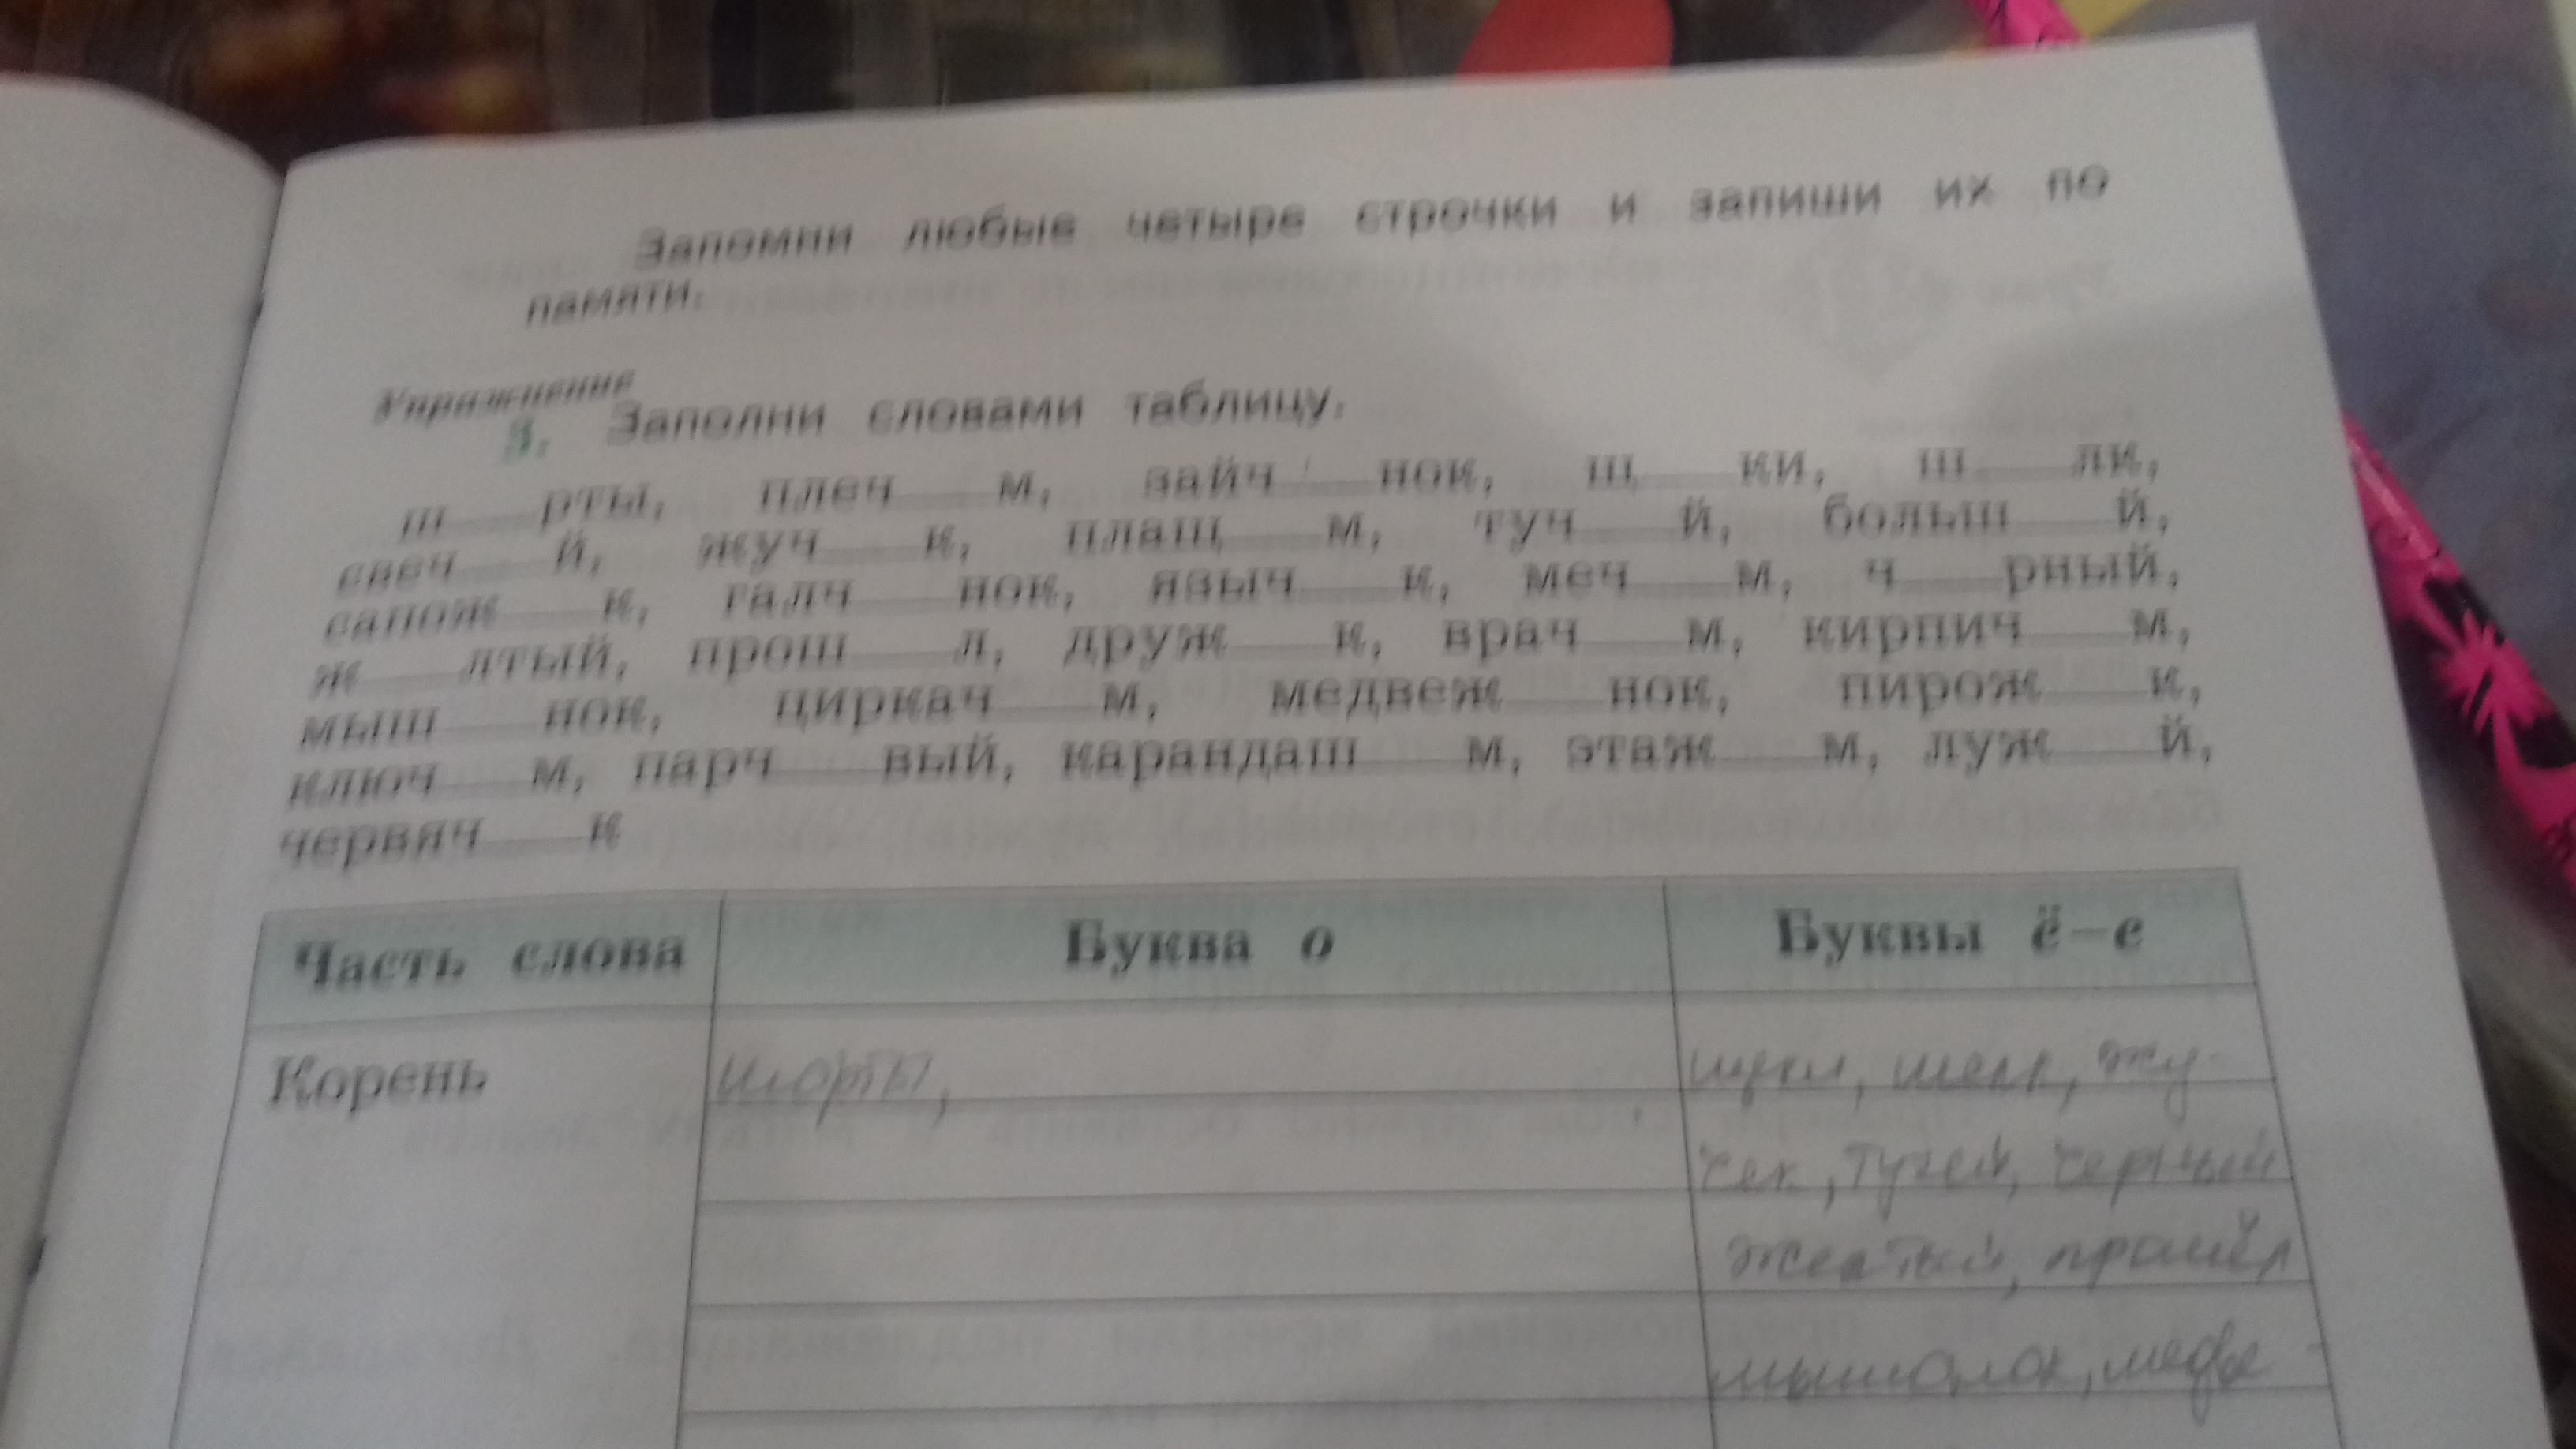 Запомни любые четыре строчки и запиши их по
памяти.
Упражнение
3. Заполни словами таблицу.
ш___рты, плеч___м, зайч___нок, щ___ки, ш___лк,
свеч___й, жуч___к, плащ___м, туч___й, больш___й,
сапож___к, галч___нок, языч___к, меч___м, ч___рный,
ж___лтый, прош___л, друж___к, врач___м, кирпич___м,
мыш___нок, циркач___м, медвеж___нок, пирож___к,
ключ___м, парч___вый, карандаш___м, этаж___м, луж___й,
червяч___к
Часть слова Буква о Буквы ё–е
Корень шорты, щеки, шелк, жу-
чек, тучей, черный
желтый, прошёл
медве